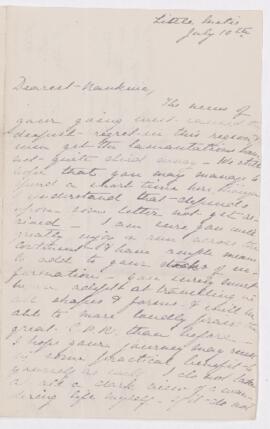 Little Metis
July 10th
Dearest
The news of
your going west caused the
deepest regret in this region &
even yet the lamentations have
not quite died away - We still
hope that you may manage to
spend a short time here
I understand that depends
upon some letter not yet
I am sure you will
greatly enjoy a run across the
continent & have ample means
to add to your stock of in-
formation - you surely must
be an adept at travelling in
all shapes & forms & will be
able to more loudly praise the
great C.P.R. than before -
I hope your journey may result
in some practical benefit to
yourself as well - I do not take
a dark view of a wan-
dering life myself - if it do not